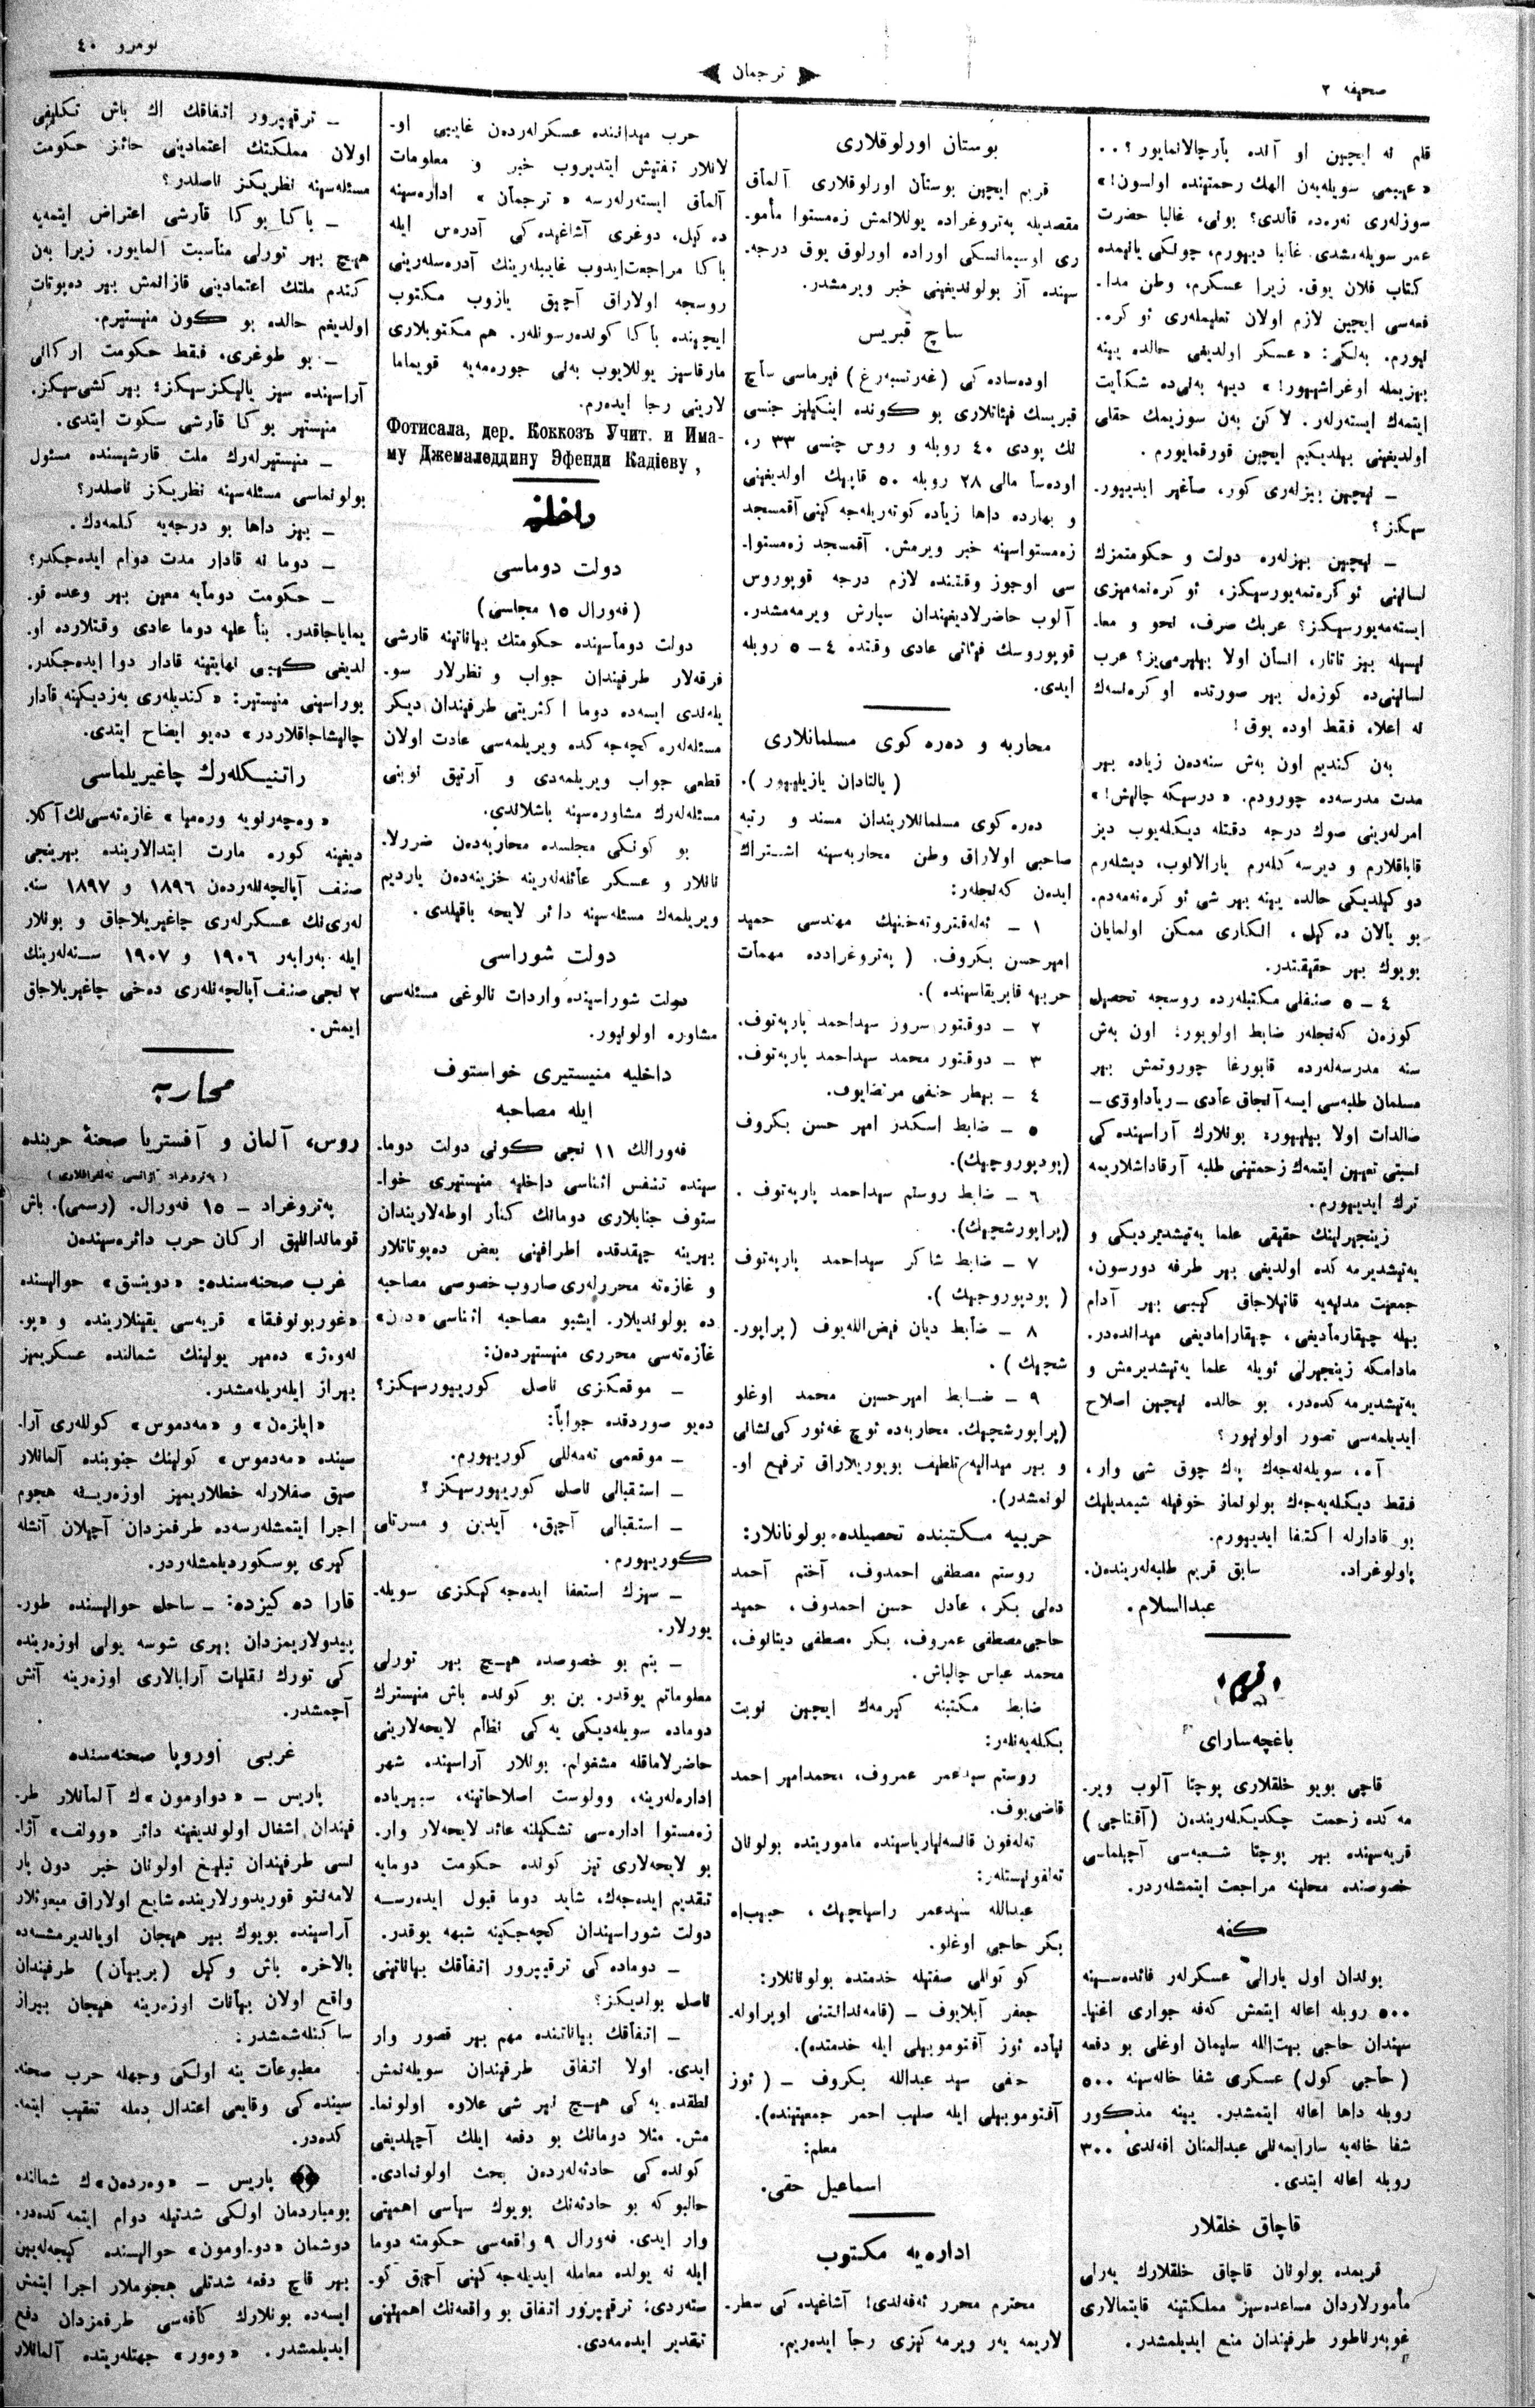 صحیفه ۲
ترجمان
نومرو ٤٠
قلم نه ایچین او آلده پارچالانمایور؟..
«عهبمی سویله‌یه‌ن الهك رحمتینده اولسون!»
سوزله‌ری نه‌ره‌ده قالدی؟ بونی، غالبا حضرت
عمر سویله‌مشدی. غالبا دیهورم، چونكی یانمده
كتاب فلان یوق. زیرا عسكرم، وطن مدا-
فعه‌سی ایچین لازم اولان تعلیمله‌ری ئوكره-
نیورم. به‌لكی: «عسكر اولدیغی حالده ینه
بیزیمله اوغراشیهور!» دیهه به‌لی‌ده شكأیت
ایتمه‌ك ایسته‌رله‌ر. لاكن به‌ن سوزیمك حقلی
اولدیغینی بیلدیكیم ایچین قورقمایورم.
– نیچین بیزله‌ری كور، صأغیر ایدیهور-
سیكز؟
– نیچین بیزله‌ره دولت و حكومتمزك
لسانینی ئوكره‌تمه‌یورسیكز، ئوكره‌نمه‌میزی
ایسته‌مه‌یورسیكز؟ عربك صرف، نحو و معا-
نیسیله بیز تاتار، انسأن اولا بیلیرمی‌یز؟ عرب
لسانینی‌ده كوزه‌ل بیر صورتده اوكره‌نسه‌ك
نه اعلا، فقط اوده یوق!
به‌ن كندیم اون به‌ش سنه‌دن زیاده بیر
مدت مدرسه‌ده چورودم. «درسیكه چالیش!»
امرله‌رینی صوك درجه دقتله دیكله‌یوب دیز
قاباقلارم و دیرسه‌كله‌رم یارالانوب، دیشله‌رم
دوكیلدیكی حالده یینه بیر شی ئوكره‌نه‌مه‌دم.
بو یالان ده‌كیل، انكاری ممكن اولمایان
بویوك بیر حقیقتدر.
٤ – ٥ صنفلی مكتبله‌رده روسجه تحصیل
كوره‌ن كه‌نجله‌ر ضابط اولویور؛ اون به‌ش
سنه مدرسه‌له‌رده قابورغا چوروتمش بیر
مسلمان طلبه‌سی ایسه آنجاق عأدی – ریأداووی –
صالدات اولا بیلیهور؛ بونلارك آراسینده‌كی
نسبتی تعیین ایتمه‌ك زحمتینی طلبه آرقاداشلاریمه
ترك ایدیهورم.
زینجیرلینك حقیقی علما یه‌تیشدیردیكی و
یه‌تیشدیرمه‌كده اولدیغی بیر طرفه دورسون،
جمعیت مدنیه‌یه قاتیلاجاق كیبی بیر آدام
بیله چیقارمأدیغی، چیقارامادیغی میدانده‌در.
مادامكه زینجیرلی ئویله علما یه‌تیشدیرمش و
یه‌تیشدیرمه‌كده‌در، بو حالده نیچین اصلاح
ایدیلمه‌سی تصور اولونیور؟
آه، سویله‌نه‌جه‌ك په‌ك چوق شی وار،
فقط دیكله‌یه‌جه‌ك بولونماز خوفیله شیمدیلیك
بو قادارله اكتفا ایدیهورم.
پاولوغراد. سابق قریم طلبه‌له‌ریندن.
عبدالسلام.
قریم
باغچه‌سارای
قاچی بویو خلقلاری پوچتا آلوب ویر-
مه‌كده زحمت چكدیكله‌ریندن (آقتاچی)
قریه‌سینده بیر پوچتا شعبه‌سی آچیلماسی
خصوصنده محلینه مراجعت ایتمشله‌ردر.
كفه
بوندان اول یارالی عسكرلر فائده‌سینه
٥٠٠ روبله اعانه ایتمش كه‌فه جواری اغنیا-
سیندان حاجی بهت‌الله سلیمان اوغلی بو دفعه
(حأجی كول) عسكری شفا خانه‌سینه ٥٠٠
روبله داها اعانه ایتمشدر. یینه مذكور
شفا خانه‌یه سارایمه‌نلی عبدالمنان افه‌ندی ٣٠٠
روبله اعانه ایتدی.
قاچاق خلقلار
قریمده بولونان قاچاق خلقلارك یه‌رلی
مأمورلاردان مساعده‌سیز مملكتینه قایتمالاری
غوبه‌رناطور طرفیندان منع ایدیلمشدر.
بوستان اورلوقلاری
قریم ایچین بوستأن اورلوقلاری آلمأق
مقصدیله په‌تروغراده یوللانمش زه‌مستوا مأمو-
ری اوسیمانسكی اوراده اورلوق یوق درجه-
سینده آز بولوندیغینی خبر ویرمشدر.
ساچ قبریس
اوده‌ساده‌كی (غه‌رتسبه‌رغ) فیرماسی سأچ
قبریسك فیئاتلاری بو كونده اینكیلیز جنسی
نك پودی ٤٠ روبله و روس جنسی ٣٣ ر،
اوده‌سأ مالی ٢٨ روبله ٥٠ قاپیك اولدیغینی
و بهارده داها زیاده كوته‌ریله‌جه‌كینی آقمسجد
زه‌مستواسینه خبر ویرمش. آقمسجد زه‌مستوا-
سی اوجوز وقتنده لازم درجه قوپوروس
آلوب حاضرلادیغیندان سپارش ویرمه‌مشدر.
قوپوروسك فیئاتی عادی وقتده ٤ – ٥ روبله
ایدی.
محاربه و ده‌ره كوی مسلمانلاری
(یالتادان یازیلیهور).
ده‌ره كوی مسلمانلاریندان مسند و رتبه
صاحبی اولاراق وطن محاربه‌سینه اشتراك
ایدەن كه‌نجله‌ر:
١ – ئه‌له‌قتروته‌خنیك مهندسی حمید
امیرحسن بكروف. (په‌تروغرادده مهمأت
حربیه فابریقاسینده).
٢ – دوقتور سروز سیداحمد یارپه‌توف.
٣ – دوقتور محمد سیداحمد یارپه‌توف.
٤ – بیطار حنفی مرتضایوف.
٥ – ضابط اسكندر امیر حسن بكروف
(پودپوروچیك).
٦ – ضابط روستم سیداحمد یارپه‌توف.
(پراپورشچیك).
٧ – ضابط شاكر سیداحمد یارپه‌توف
(پودپوروچیك).
٨ – ضأبط دیان فیض‌الله‌یوف (پراپور-
شچیك).
٩ – ضابط امیرحسین محمد اوغلو
(پراپورشچیك. محاربه‌ده ئوچ غه‌ئور كی‌نشانی
و بیر میدالیه تلطیف بویوریلاراق ترفیع او-
لونمشدر).
حربیه مكتبنده تحصیلده بولونانلار:
روستم مصطفی احمدوف، آختم آحمد
ده‌لی بكر، عأدل حسن احمدوف، حمید
حاجی‌مصطفی عمروف، بكر مصطفی دینانوف،
محمد عباس چالباش.
ضابط مكتبنه كیرمه‌ك ایچین نوبت
بكله‌یه‌نله‌ر:
روستم سیدعمر عمروف، محمدامیر احمد
قاضی‌یوف.
ته‌له‌فون قانسه‌لیاریاسینده ماموریتده بولونان
ته‌لفونیستله‌ر:
عبدالله سیدعمر راسپاچیك، حبیب‌اه
بكر حاجی اوغلو.
كوكوللی صفتیله خدمتده بولونانلار:
جعفر آبلایوف – (قامه‌ندانتنی اوپراوله-
نیأده ئوز آفتوموبیلی ایله خدمتده).
حنفی سید عبدالله بكروف – (ئوز
آفتوموبیلی ایله صلیب احمر جمعیتینده).
معلم:
اسماعیل حقی.
اداره‌یه مكتوب
محترم محرر ئه‌فه‌ندی! آشاغیده‌كی سطر-
لاریمه یه‌ر ویرمه‌كیزی رجأ ایده‌ریم.
حرب میداننده عسكرله‌ردن غایبی او-
لانلار تفتیش ایتدیروب خبر و معلومات
آلمأق ایسته‌رله‌رسه «ترجمأن» اداره‌سینه
ده‌كیل، دوغری آشاغیده‌كی آدره‌س ایله
باكا مراجعت‌ایدوب غایبله‌رینك آدره‌سله‌رینی
روسجه اولاراق آچیق یازوب مكتوب
ایچینده باكا كونده‌رسونله‌ر. هم مكتوبلاری
مارقاسیز یوللایوب به‌نی جوره‌مه‌یه قویماما
لارینی رجا ایده‌رم.
Фотисала, дер. Коккозъ Учит. и Има-
му Джемаледдину Эфенди Кадіеву,
داخلیه
دولت دوماسی
(فه‌ورال ١٥ مجلسی)
دولت دومأسینده حكومتك بیاناتینه قارشی
فرقه‌لار طرفیندان جواب و نظرلار سو-
یله‌ندی ایسه‌ده دوما اكثریتی طرفیندان دیكر
مسئله‌له‌ره كچه‌جه‌كده ویریلمه‌سی عادت اولان
قطعی جواب ویریلمه‌دی و آرتیق نوبتی
مسئله‌له‌رك مشاوره‌سینه باشلاندی.
بو كونكی مجلسده محاربه‌دن ضررلا-
نانلار و عسكر عأئله‌له‌رینه خزینه‌دن یاردیم
ویریلمه‌ك مسئله‌سینه دائر لایحه باقیلدی.
دولت شوراسی
دولت شوراسینده واردات نالوغی مسئله‌سی
مشاوره اولونیور.
داخلیه منیستیری خواستوف
ایله مصاحبه
فه‌ورالك ١١ نجی كونی دولت دوما-
سینده تنفس اثناسی داخلیه منیستیری خوا-
ستوف جنابلاری دومانك كنأر اوطه‌لاریندان
بیرینه چیقدقده اطرافینی بعض ده‌پوتاتلار
و غازه‌ته محررله‌ری صاروب خصوصی مصاحبه
ده بولوندیلار. ایشبو مصاحبه اثناسی «دن»
غازه‌ته‌سی محرری منیستیردن:
– موقعكزی ناصل كوریبورسیكز؟
ده‌یو صوردقده جواباً:
– موقعمی ته‌مه‌للی كوریهورم.
– استقبالی ناصل كوریهورسیكز؟
– استقبالی آچیق، آیدین و مسرتلی
كوریهورم.
– سیزك استعفا ایده‌جه‌كیكزی سویله-
یورلار.
– بنم بو خصوصده هیچ بیر تورلی
معلوماتم یوقدر. بن بو كونده باش منیسترك
دوماده سویله‌دیكی یه‌كی نظأم لایحه‌لارینی
حاضرلاماقله مشغولم. بونلار آراسینده شهر
اداره‌له‌رینه، وولوست اصلاحاتینه، سیبریاده
زه‌مستوا اداره‌سی تشكیلنه عائد لایحه‌لار وار.
بو لایحه‌لاری تیز كونده حكومت دومایه
تقدیم ایده‌جه‌ك، شاید دوما قبول ایده‌رسه
دولت شوراسیندان كچه‌جكینه شبهه یوقدر.
– دوماده‌كی ترقیپرور اتفأقك بیاناتینی
ناصل بولدیكز؟
– اتفأقك بیاناتنده مهم بیر قصور وار
ایدی. اولا اتفاق طرفیندان سویله‌نمش
نطقده یه‌كی هیچ بیر شی علاوه اولونما-
مش. مثلا دومانك بو دفعه ایلك آچیلدیغی
كونده‌كی حادثه‌له‌ردن بحث اولونمادی.
حالبوكه بو حادثه‌نك بویوك سیاسی اهمیتی
وار ایدی. فه‌ورال ٩ واقعه‌سی حكومته دوما
ایله نه یولده معامله ایدیله‌جه‌كینی آچیق كو-
سته‌ردی؛ ترقیپرور اتفاق بو واقعه‌نك اهمیتینی
تقدیر ایده‌مه‌دی.
– ترقیپرور اتفاقك اك باش تكلیفی
اولان مملكتك اعتمادینی حائز حكومت
مسئله‌سینه نظریكز ناصلدر؟
– باكا بوكا قأرشی اعتراض ایتمه‌یه
هیچ بیر تورلی مناسبت آلمایور. زیرا به‌ن
كندم ملتك اعتمادینی قازانمش بیر ده‌پوتات
اولدیغم حالده بو كون منیستیرم.
– بو طوغری، فقط حكومت اركانی
آراسینده سیز یالیكزسیكز؛ بیر كشی‌سیكز.
منیستیر بوكا قأرشی سكوت ایتدی.
– منیستیرله‌رك ملت قارشیسنده مسئول
بولونماسی مسئله‌سینه نظریكز ناصلدر؟
– بیز داها بو درجه‌یه كلمه‌دك.
– دوما نه قادار مدت دوام ایده‌جكدر؟
– حكومت دومأیه معین بیر وعده قو-
یمایاجاقدر. بنأ علیه دوما عادی وقتلارده او-
لدیغی كیبی نهایتینه قادار دوا ایده‌جكدر.
بوراسینی منیستیر: «كندیله‌ری به‌زدیكینه قأدار
چالیشاجاقلاردر» ده‌یو ایضاح ایتدی.
راتنیكله‌رك چاغیریلماسی
«وه‌چه‌رنویه وره‌میا» غازه‌ته‌سی‌نك آكلا-
دیغینه كوره مارت ابتدالارینده بیرینجی
صنف آپالچه‌نله‌ردن ١٨٩٦ و ١٨٩٧ سنه-
له‌ری‌نك عسكرله‌ری چاغیریلاجاق و بونلار
ایله به‌رابه‌ر ١٩٠٦ و ١٩٠٧ سنه‌له‌رینك
٢ نجی صنف آپالچه‌نله‌ری ده‌خی چاغیریلاجاق
ایمش.
محاربه
روس، آلمان و آفستریا صحنهٔ حربنده
(په‌تروغراد آژانسی ته‌لغرافلاری)
په‌تروغراد – ١٥ فه‌ورال. (رسمی). باش
قوماندانلیق اركان حرب دائره‌سیندن
غرب صحنه‌سنده: «دوینسق» حوالیسنده
«غوربونوفقا» قریه‌سی یقینلارینده و «پو-
نه‌وه‌ژ» ده‌میر یولینك شمالنده عسكریمیز
بیراز ایله‌ریله‌مشدر.
«ایلزه‌ن» و «مه‌دموس» كوللەری آرا-
سینده «مه‌دموس» كولینك جنوبنده آلمانلار
صیق صفلارله خطلاریمیز اوزه‌رینه هجوم
اجرا ایتمشله‌رسه‌ده طرفمزدان آچیلان آتشله
كیری پوسكوردیلمشله‌ردر.
قارا ده‌كیزده: – ساحل حوالیسنده طور-
پیدولاریمزدان بیری شوسه یولی اوزه‌رینده
كی تورك نقلیات آرابالاری اوزه‌رینه آتش
آچمشدر.
غربی أوروپا صحنه‌سنده
پاریس – «دواومون»ك آلمأنلار طر-
فیندان اشغال اولوندیغینه دائر «وولف» آژا-
نسی طرفیندان تبلیغ اولونان خبر دون پار
لامه‌نتو قوریدورلارینده شایع اولاراق مبعوثلار
آراسینده بویوك بیر هیجان اویاندیرمشسه‌ده
بالاخره باش وكیل (بریهأن) طرفیندان
واقع اولان بیانات اوزه‌رینه هیجان بیراز
ساكنله‌شمشدر.
مطبوعأت ینه اولكی وجهله حرب صحنه-
سینده‌كی وقایعی اعتدال دمله تعقیب ایتمه-
كده‌در.
پاریس – «وه‌ردەن»ك شمالنده
بومباردمان اولكی شدتیله دوام ایتمه‌كده‌در.
دوشمان «دواومون» حوالیسنده كیجه‌له‌یین
بیر قاچ دفعه شدتلی هجوملار اجرا ایتمش
ایسه‌ده بونلارك كأفه‌سی طرفمزدان دفع
ایدیلمشدر. «وه‌ور» جهتله‌رینده آلمانلار